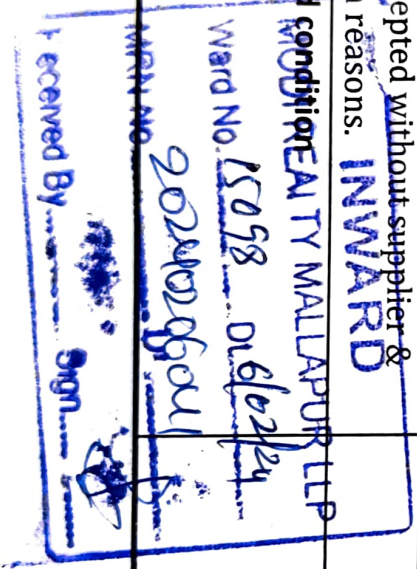 epted without supplier &
reasons.
d condition
INWARD
MODI REALTY MALLAPUR LLP
Ward No. 15098 Dt. 6/02/24
MRN No. 20240206041
eceived By Sign